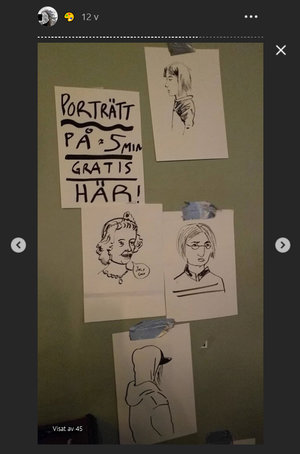 12 v
PORTRÄTT
PÅ ≈ 5 MIN
GRATIS
HÄR!
Visat av 45